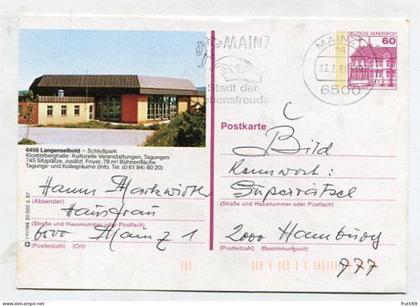 MAINZ
Stadt der
bensfreude
MAINZ
12.2.88
6500
DEUTSCHE BUNDESPOST
60
6456 Langenselbold – Schloßpark
Klosterberghalle: Kulturelle Veranstaltungen, Tagungen
745 Sitzplätze, zusätzl. Foyer, 78 m² Bühnenfläche
Tagungs- und Kollegräume (Info. Tel. (0 61 84) 80 20)
Hanna
(Absender)
Hausfrau
(Straße und Hausnummer oder Postfach)
6500 Mainz 1
(Postleitzahl) (Ort)
Postkarte
Bild
Kennwort:
Superrätsel
(Straße und Hausnummer oder Postfach)
2000 Hamburg
(Postleitzahl) (Bestimmungsort)
777